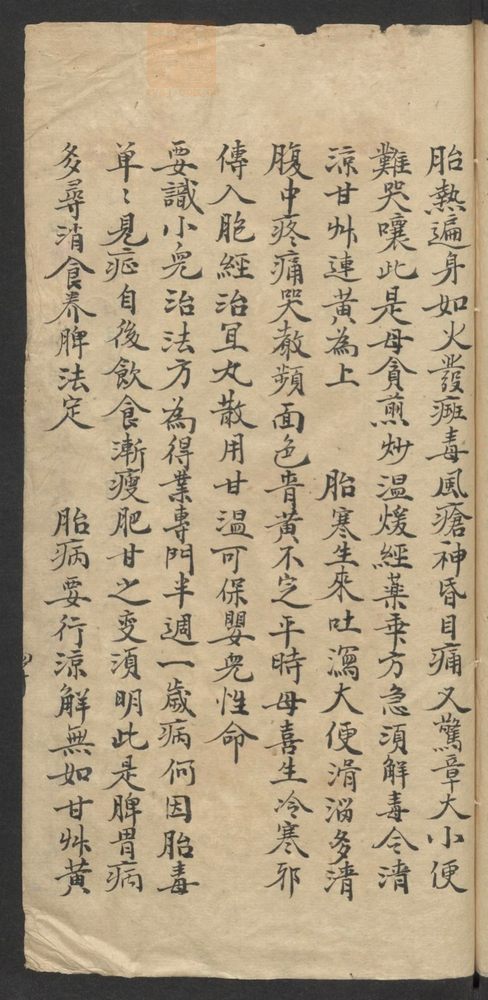 胎熱遍身如火發癍毒風瘡神昏目痛又驚章大小便
難哭嚷此是母貪煎炒温煖經藥乗方急須解毒令清
涼甘艸連黄為上　胎寒生來吐瀉大便滑溜多清
腹中疼痛哭教頻面色青黄不定平時母喜生冷寒邪
傳入胞經治宜丸散用甘温可保嬰兒性命
要識小兒治法方為得業專門半週一歲病何因胎毒
单〻見症自後飲食漸瘦肥甘之变須明此是脾胃病
多尋消食养脾法定　胎病要行涼解無如甘艸黄